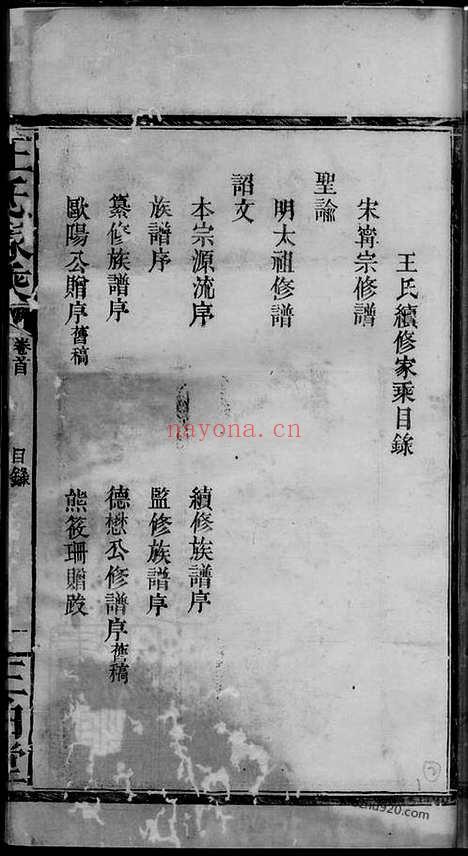 王氏續修家乘目錄
宋寧宗修譜
聖諭
明太祖修譜
詔文
本宗源流序
續修族譜序
族譜序
監修族譜序
纂修族譜序
德懋公修譜序舊稿
歐陽公贈序舊稿
熊筱珊贈跋
卷首
目錄
一
nayona.cn